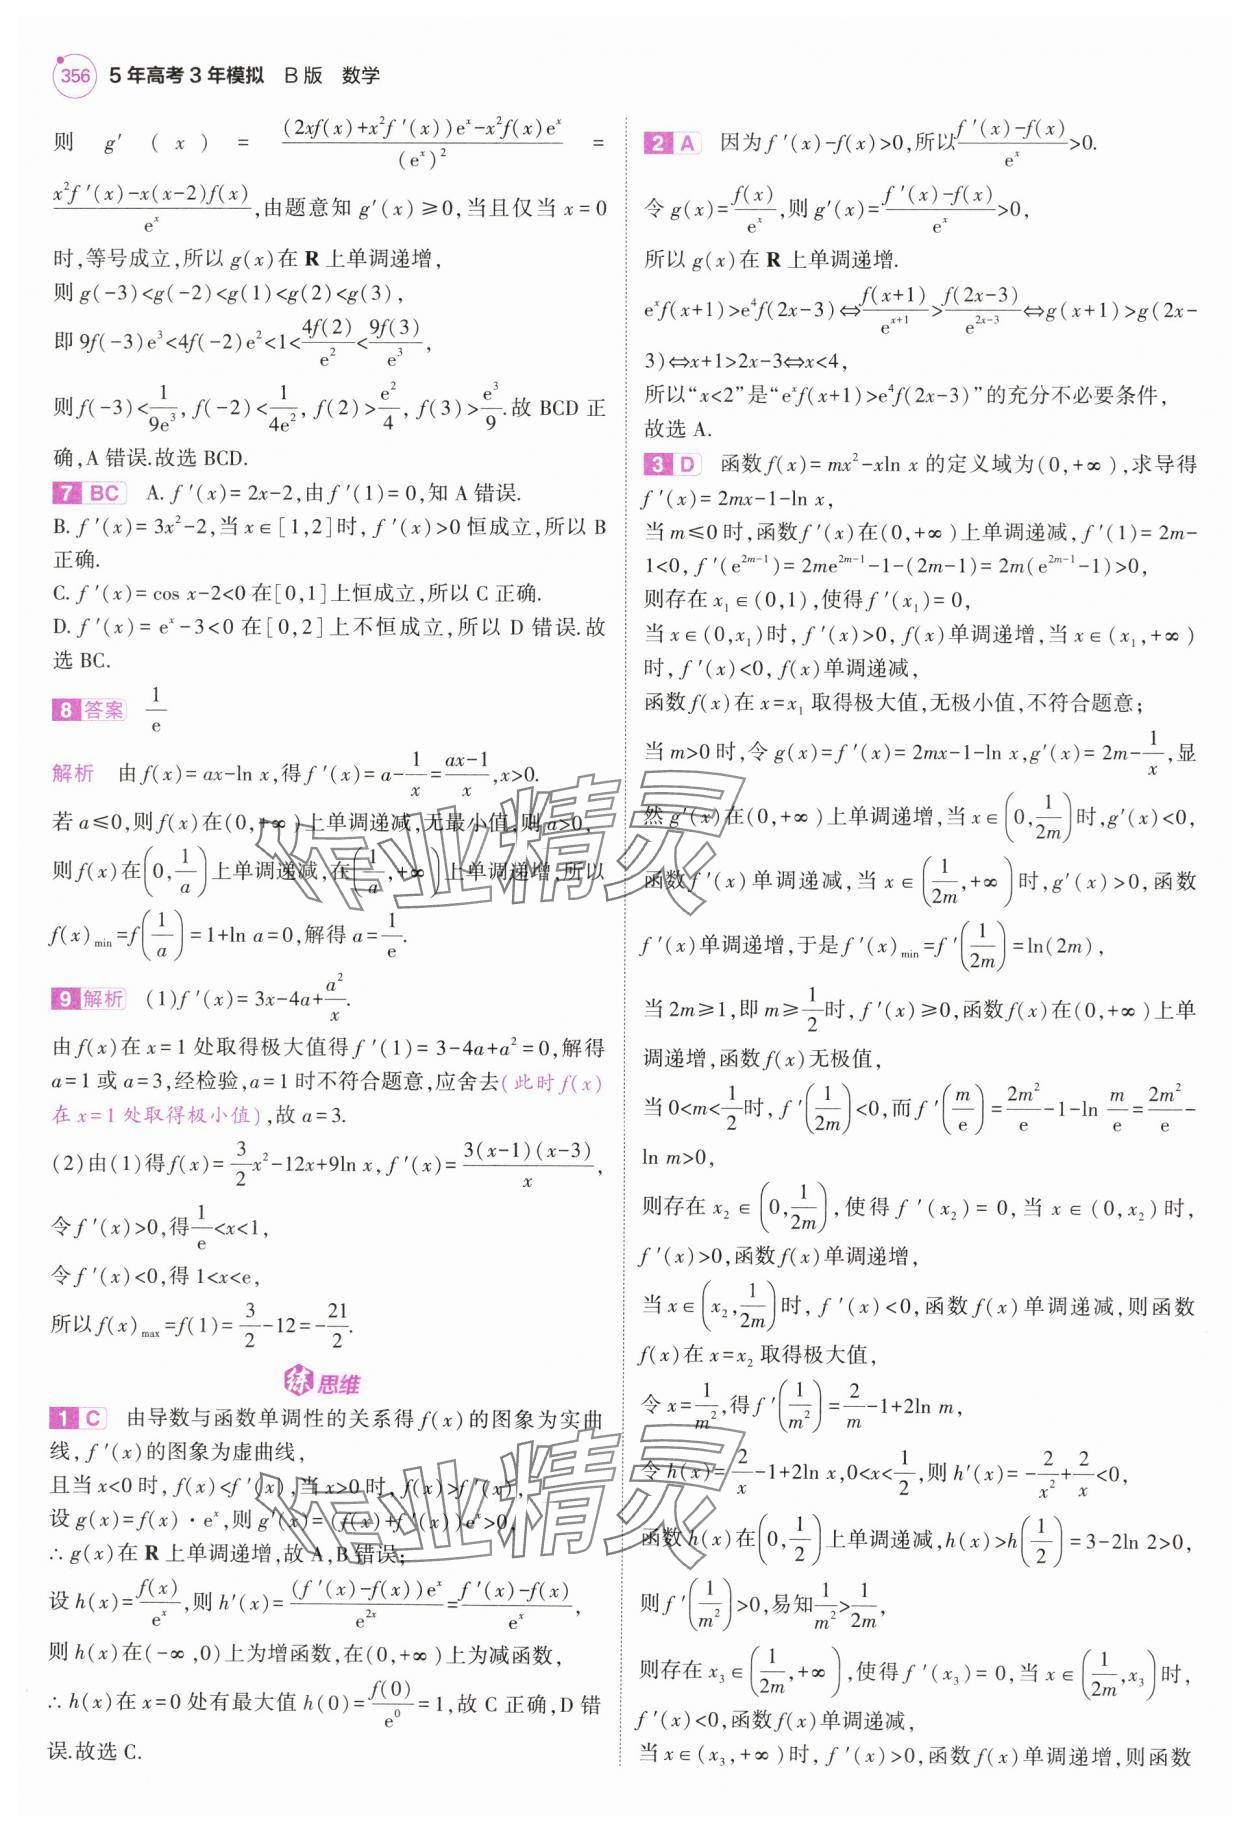 356 5年高考3年模拟 B版 数学
则 g′(x) = ((2xf(x)+x²f′(x))eˣ-x²f(x)eˣ)/(eˣ)² =
(x²f′(x)-x(x-2)f(x))/eˣ,由题意知 g′(x)≥0,当且仅当 x=0
时,等号成立,所以 g(x)在 R 上单调递增,
则 g(-3)<g(-2)<g(1)<g(2)<g(3),
即 9f(-3)e³<4f(-2)e²<1<4f(2)/e²<9f(3)/e³,
则f(-3)<1/(9e³), f(-2)<1/(4e²), f(2)>e²/4, f(3)>e³/9.故 BCD 正
确,A 错误.故选 BCD.
7 BC A. f′(x)=2x-2,由f′(1)=0,知 A 错误.
B. f′(x)=3x²-2,当 x∈[1,2]时, f′(x)>0 恒成立,所以 B
正确.
C. f′(x)=cos x-2<0 在[0,1]上恒成立,所以 C 正确.
D. f′(x)=eˣ-3<0 在[0,2]上不恒成立,所以 D 错误.故
选 BC.
8 答案 1/e
解析 由f(x)=ax-ln x,得f′(x)=a-1/x=(ax-1)/x,x>0.
若 a≤0,则f(x)在(0,+∞)上单调递减,无最小值,则a>0,
则 f(x)在(0,1/a)上单调递减,在(1/a,+∞)上单调递增,所以
f(x)min=f(1/a)=1+ln a=0,解得 a=1/e.
9 解析 (1)f′(x)=3x-4a+a²/x.
由f(x)在 x=1 处取得极大值得f′(1)=3-4a+a²=0,解得
a=1 或 a=3,经检验,a=1 时不符合题意,应舍去(此时f(x)
在 x=1 处取得极小值),故 a=3.
(2)由(1)得f(x)=3/2x²-12x+9ln x, f′(x)=3(x-1)(x-3)/x,
令f′(x)>0,得1/e<x<1,
令f′(x)<0,得 1<x<e,
所以f(x)max=f(1)=3/2-12=-21/2.
练思维
1 C 由导数与函数单调性的关系得f(x)的图象为实曲
线, f′(x)的图象为虚曲线,
且当 x<0 时, f(x)<f′(x),当 x>0 时, f(x)>f′(x),
设 g(x)=f(x)·eˣ,则 g′(x)=(f(x)+f′(x))eˣ>0,
∴g(x)在 R 上单调递增,故 A,B 错误;
设 h(x)=f(x)/eˣ,则 h′(x)=(f′(x)-f(x))eˣ/e²ˣ=(f′(x)-f(x))/eˣ,
则 h(x)在(-∞,0)上为增函数,在(0,+∞)上为减函数,
∴h(x)在 x=0 处有最大值 h(0)=f(0)/e⁰=1,故 C 正确,D 错
误.故选 C.
2 A 因为f′(x)-f(x)>0,所以(f′(x)-f(x))/eˣ>0.
令 g(x)=f(x)/eˣ,则 g′(x)=(f′(x)-f(x))/eˣ>0,
所以 g(x)在 R 上单调递增.
eˣf(x+1)>e⁴f(2x-3)⇔f(x+1)/eˣ⁺¹>f(2x-3)/e²ˣ⁻³⇔g(x+1)>g(2x-
3)⇔x+1>2x-3⇔x<4,
所以“x<2”是“eˣf(x+1)>e⁴f(2x-3)”的充分不必要条件,
故选 A.
3 D 函数f(x)=mx²-xln x 的定义域为(0,+∞),求导得
f′(x)=2mx-1-ln x,
当 m≤0 时,函数f′(x)在(0,+∞)上单调递减, f′(1)=2m-
1<0, f′(e²ᵐ⁻¹)=2me²ᵐ⁻¹-1-(2m-1)=2m(e²ᵐ⁻¹-1)>0,
则存在 x₁∈(0,1),使得f′(x₁)=0,
当 x∈(0,x₁)时, f′(x)>0, f(x)单调递增,当 x∈(x₁,+∞)
时, f′(x)<0, f(x)单调递减,
函数f(x)在 x=x₁ 取得极大值,无极小值,不符合题意;
当 m>0 时,令 g(x)=f′(x)=2mx-1-ln x,g′(x)=2m-1/x,显
然 g′(x)在(0,+∞)上单调递增,当 x∈(0,1/2m)时,g′(x)<0,
函数f′(x)单调递减,当 x∈(1/2m,+∞)时,g′(x)>0,函数
f′(x)单调递增,于是f′(x)min=f′(1/2m)=ln(2m),
当 2m≥1,即 m≥1/2时, f′(x)≥0,函数f(x)在(0,+∞)上单
调递增,函数f(x)无极值,
当 0<m<1/2时, f′(1/2m)<0,而f′(m/e)=2m²/e-1-ln m/e=2m²/e-
ln m>0,
则存在 x₂∈(0,1/2m),使得 f′(x₂)=0,当 x∈(0,x₂)时,
f′(x)>0,函数f(x)单调递增,
当 x∈(x₂,1/2m)时, f′(x)<0,函数f(x)单调递减,则函数
f(x)在 x=x₂ 取得极大值,
令 x=1/m²,得f′(1/m²)=2/m-1+2ln m,
令 h(x)=2/x-1+2ln x,0<x<1/2,则 h′(x)=-2/x²+2/x<0,
函数 h(x)在(0,1/2)上单调递减,h(x)>h(1/2)=3-2ln 2>0,
则f′(1/m²)>0,易知1/m²>1/2m,
则存在 x₃∈(1/2m,+∞),使得f′(x₃)=0,当 x∈(1/2m,x₃)时,
f′(x)<0,函数f(x)单调递减,
当 x∈(x₃,+∞)时, f′(x)>0,函数f(x)单调递增,则函数
作业精灵
作业精灵